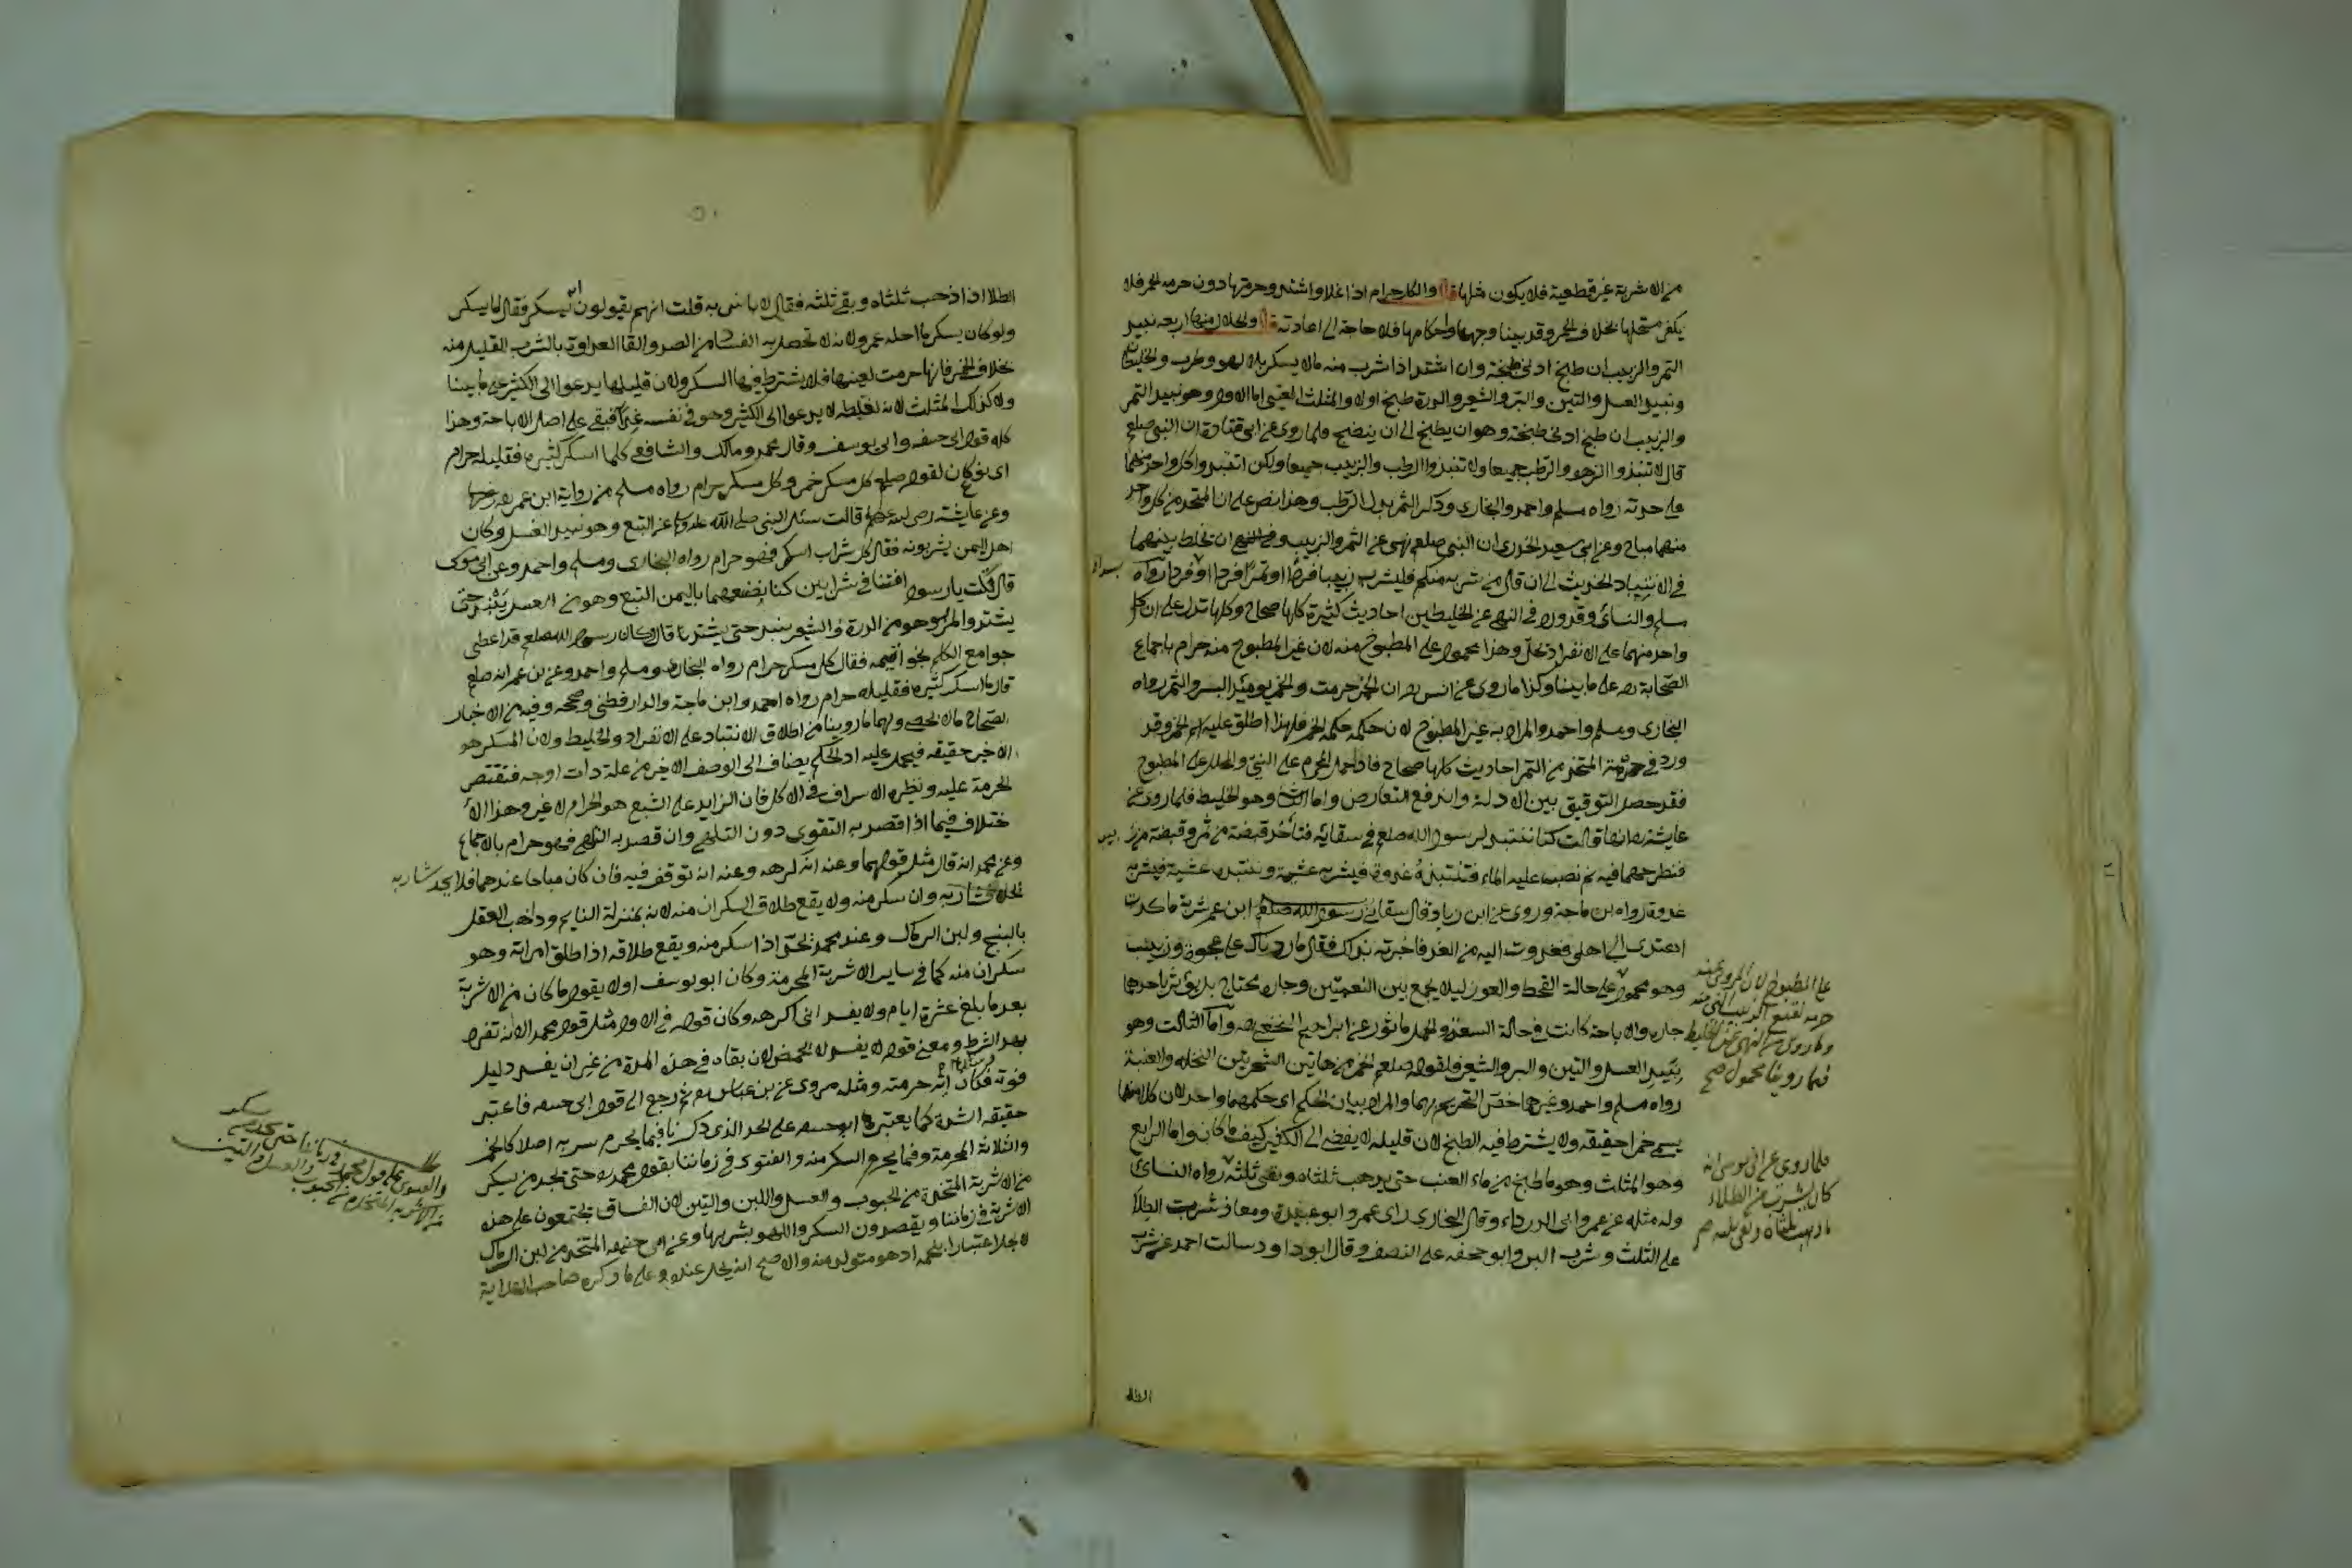 من الاشربة غير قطعية فلا يكون مثلها قال والكل حرام اذا غلا واشتد وحرمتها دون حرمة الخمر فلا
يكفر مستحلها بخلاف الخمر وقد بينا وجهها واحكامها فلا حاجة الى اعادته قال والحلال منها اربعة نبيذ
التمر والزبيب ان طبخ ادنى طبخة وان اشتد اذا شرب منه مالا يسكر بلا لهو وطرب والخليطان
ونبيذ العسل والتين والبر والشعير والذرة طبخ اولا والمثلث العنبي اما الاول وهو نبيذ التمر
والزبيب ان طبخ ادنى طبخة وهو ان يطبخ الى ان ينضج فلما روى عن ابى قتادة ان النبى صلعم
قال لا تنبذوا الزهو والرطب جميعا ولا تنبذوا الرطب والزبيب جميعا ولكن انتبذوا كل واحد منهما
على حدته رواه مسلم واحمد والبخارى وذكر التمر بدل الرطب وهذا نص على ان المتخذ من كل واحد
منهما مباح وعن ابى سعيد الخدرى ان النبى صلعم نهى عن التمر والزبيب ان تخلط بينهما
فى الانتباذ الحديث الى ان قال من شربه منكم فليشربه زبيبا فردا او تمرا فردا او فردا رواه
بسرا
مسلم والنسائى وقد ورد فى النهى عن الخليطين احاديث كثيرة كلها صحاح وكلها تدل على ان كل
واحد منهما على الانفراد يحل وهذا محمول على المطبوخ منه لان غير المطبوخ منه حرام باجماع
الصحابة رضه على ما بينا وكذا ما روى عن انس رضه ان الخمر حرمت والخمر يومئذ البسر والتمر رواه
البخارى ومسلم واحمد والمراد به غير المطبوخ لان حكمه حكم الخمر فلهذا اطلق عليه اسم الخمر وقد
ورد فى حرمة المتخذ من التمر احاديث كلها صحاح فاذا حمل المحرم على النئ والمحلل على المطبوخ
فقد حصل التوفيق بين الادلة واندفع التعارض واما الثانى وهو الخليط فلما روى عن
عايشة رضه انها قالت كنا ننتبذ لرسول الله صلعم فى سقائه فنأخذ قبضة من تمر وقبضة من
زبيب
فنطرحهما فيه ثم نصب عليه الماء فننتبذه غدوة فيشربه عشية وننتبذه عشية فيشربه
غدوة رواه بن ماجة وروى عن ابن زياد قال سقانى ابن عمر شربة ما كدت
اهتدى الى اهلى فغدوت اليه من الغد فاخبرته بذلك فقال ما زدناك على عجوة وزبيب
على المطبوخ لان المروى عنه
حرمة نقيع الزبيب النئ منه
وما روى من النهى عن الخليط
فيما روينا محمول صح
وهو محمول على حالة القحط والعوز ليلا يجمع بين النعمتين وجاره محتاج بل يؤثر باحدهما
جاره والاباحة كانت فى حالة السعة والحمل ماثور عن ابراهيم النخعى رضه واما الثالث وهو
نبيذ العسل والتين والبر والشعير فلقوله صلعم الخمر من هاتين الشجرتين النخلة والعنبة
رواه مسلم واحمد وغيرهما خص التحريم بهما والمراد بيان الحكم اى حكمهما واحد لان كلا منهما
يسمى خمرا حقيقة ولا يشترط فيه الطبخ لان قليله لا يفضى الى الكثير كيف ما كان واما الرابع
وهو المثلث وهو ما طبخ من ماء العنب حتى يذهب ثلثاه وبقى ثلثه رواه النسائى
فلما روى عن ابى موسى انه
كان يشرب من الطلاء
ما ذهب ثلثاه وبقى ثلثه صح
وله مثله عن عمر وابى الدرداء وقال البخارى راى عمر وابو عبيدة ومعاذ شرب الطلا
على الثلث وشرب البرا وابو جحيفه على النصف وقال ابو داود سالت احمد عن شرب
الطلا
الطلا اذا ذهب ثلثاه وبقى ثلثه فقال لا باس به قلت انهم يقولون انه يسكر فقال لا يسكر
ولو كان يسكر ما احله عمر ولانه لا تحصل به الفساد من الصد والقا العداوة بالشرب القليل منه
بخلاف الخمر فانها حرمت لعينها فلا يشترط فيها السكر ولان قليلها يدعوا الى الكثير على ما بينا
ولا كذلك المثلث لانه لغلظه لا يدعوا الى الكثير وهو فى نفسه غذا فبقى على اصل الاباحة وهذا
كله قول ابى حنيفه وابى يوسف وقال محمد ومالك والشافعى كلما اسكر كثيره فقليله حرام
اى نوع كان لقوله صلعم كل مسكر خمر وكل مسكر حرام رواه مسلم من رواية ابن عمر رضه
وعن عايشة رضى الله عنها قالت سئل النبى صلى الله عليه وسلم عن التبع وهو نبيذ العسل وكان
اهل اليمن يشربونه فقال كل شراب اسكر فهو حرام رواه البخارى ومسلم واحمد وعن ابى موسى
قال قلت يا رسول افتنا فى شرابين كنا نصنعهما باليمن التبع وهو من العسل ينبذ حتى
يشتد والمزر وهو من الذرة والشعير ينبذ حتى يشتد قال وكان رسول الله صلعم قد اعطى
جوامع الكلم بخواتيمه فقال كل مسكر حرام رواه البخارى ومسلم واحمد وعن بن عمر انه صلعم
قال ما اسكر كثيره فقليله حرام رواه احمد وابن ماجة والدارقطنى وصححه وفيه من الاخبار
الصحاح مالا يحصى ولهما ما روينا من اطلاق الانتباذ على الانفراد والخليط ولان المسكر هو
الاخير حقيقه فيحمل عليه اذ الحكم يضاف الى الوصف الاخير من علة ذات اوجه فتقتصر
الحرمة عليه ونظيره الاسراف فى الاكل فان الزايد على الشبع هو الحرام لا غير وهذا الا
ختلاف فيما اذا قصد به التقوى دون التلهى وان قصد به التلهى فهو حرام بالاجماع
وعن محمد انه قال مثل قولهما وعنه انه كره وعنه انه توقف فيه فان كان مباحا عندهما فلا يحد شاربه
وان سكر منه ولا يقع طلاق السكران منه لانه بمنزلة النايم وذاهب العقل
بالبنج ولبن الرماك وعند محمد يحد اذا سكر منه ويقع طلاقه اذا طلق امراته وهو
سكران منه كما فى ساير الاشربة المحرمة وكان ابو يوسف اولا يقول ما كان من الاشربة
بعد ما بلغ عشرة ايام ولا يفسد انى اكرهه وكان قوله فى الاول مثل قول محمد الا انه تفرد
بهذا الشرط ومعنى قوله لا يفسد لا يحمض لان بقاه فى هذه المدة من غير ان يفسد دليل
قوته وشدته فكان اية حرمته ومثله مروى عن بن عباس رضه ثم رجع الى قول ابى حنيفه فاعتبر
حقيقه الشدة كما يعتبرها ابو حنيفه على الحد الذى ذكرنا فيما يحرم شربه اصلا كالخمر
والثلاثة المحرمة وفيما يحرم السكر منه والفتوى فى زماننا بقول محمد رضه حتى يحد من سكر
من الاشربة المتخذة من الحبوب والعسل واللبن والتين لان الفساق يجتمعون على هذه
الاشربة فى زماننا ويقصدون السكر واللهو بشربها وعن ابى حنيفه المتخذ من لبن الرماك
لا يحل اعتبارا بلحمه اذ هو متولد منه والاصح انه يحل عنده وعلى ما ذكره صاحب الهداية
والفتوى على قول محمد فى زماننا حتى يحد من سكر
من الاشربة المتخذة من الحبوب والعسل والتين